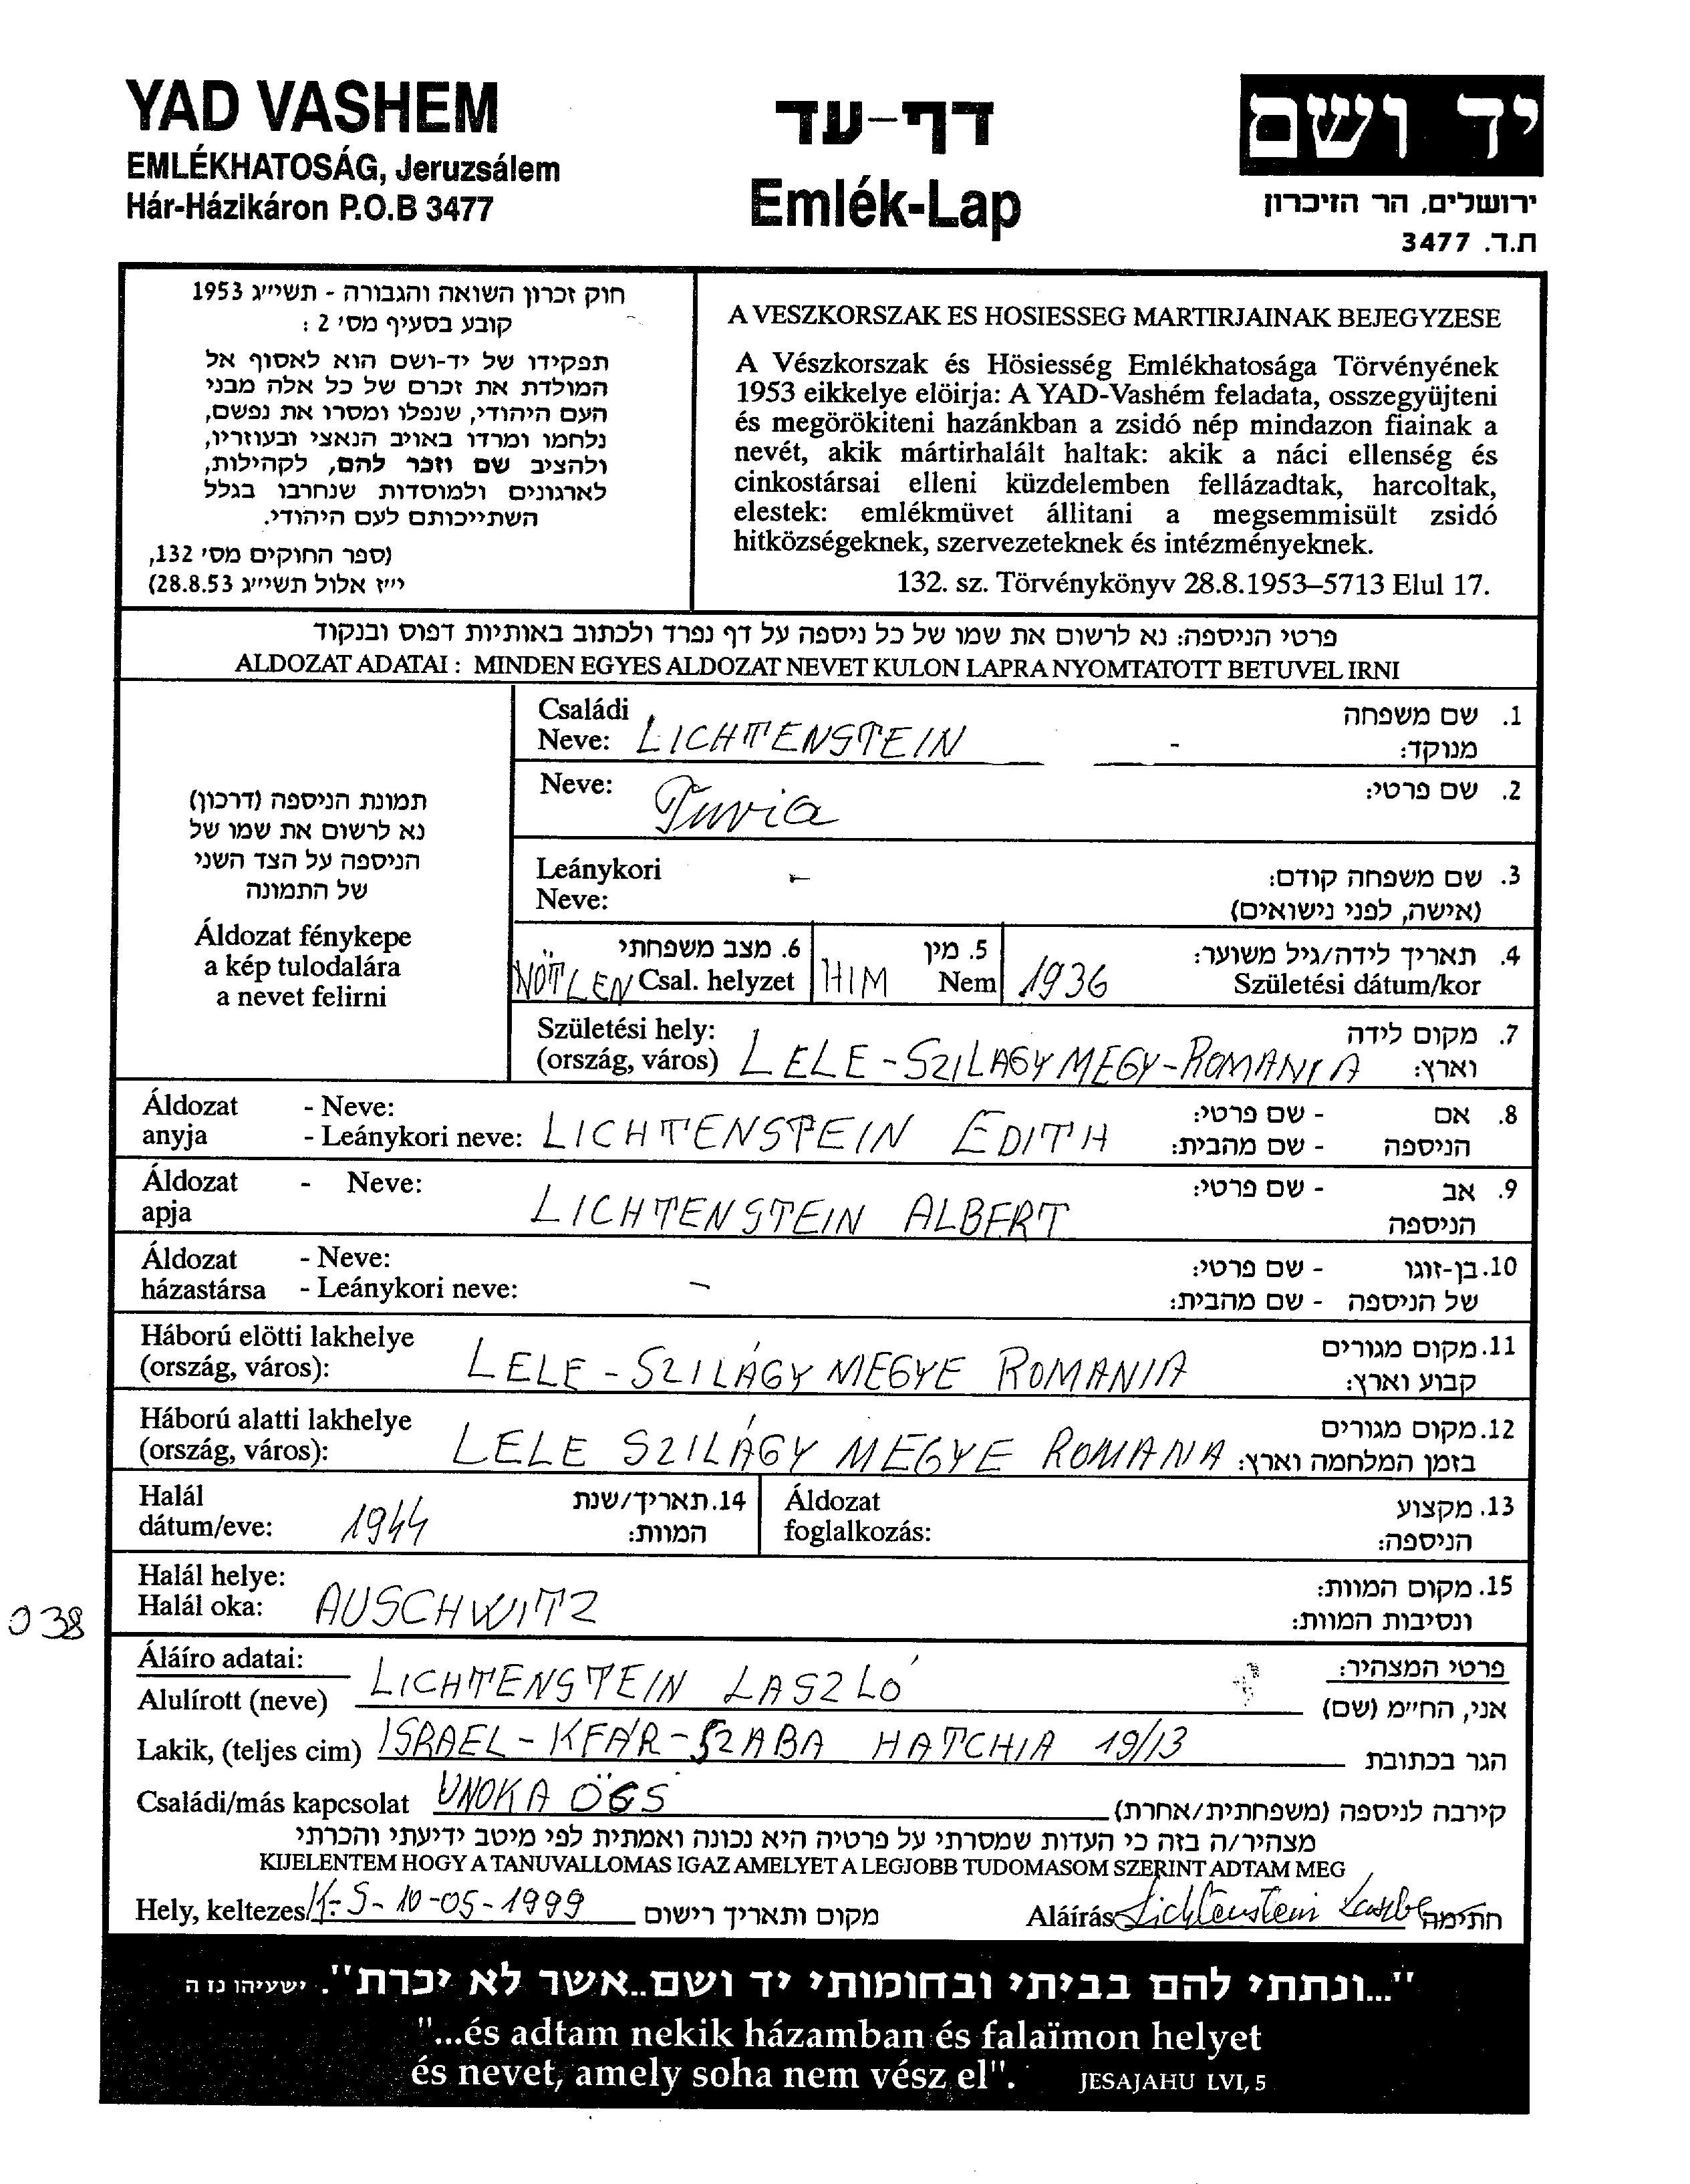 YAD VASHEM
EMLÉKHATOSÁG, Jeruzsálem
Hár-Házikáron P.O.B 3477
דף-עד
Emlék-Lap
יד ושם
ירושלים, הר הזיכרון
ת.ד. 3477
חוק זכרון השואה והגבורה - תשי״ג 1953
קובע בסעיף מס׳ 2 :
תפקידו של יד-ושם הוא לאסוף אל
המולדת את זכרם של כל אלה מבני
העם היהודי, שנפלו ומסרו את נפשם,
נלחמו ומרדו באויב הנאצי ובעוזריו,
ולהציב שם וזכר להם, לקהילות,
לארגונים ולמוסדות שנחרבו בגלל
השתייכותם לעם היהודי.
(ספר החוקים מס׳ 132,
י״ז אלול תשי״ג 28.8.53)
A VESZKORSZAK ES HOSIESSEG MARTIRJAINAK BEJEGYZESE
A Vészkorszak és Hösiesség Emlékhatosága Törvényének
1953 eikkelye elöirja: A YAD-Vashém feladata, osszegyüjteni
és megörökiteni hazánkban a zsidó nép mindazon fiainak a
nevét, akik mártirhalált haltak: akik a náci ellenség és
cinkostársai elleni küzdelemben fellázadtak, harcoltak,
elestek: emlékmüvet állitani a megsemmisült zsidó
hitközségeknek, szervezeteknek és intézményeknek.
132. sz. Törvénykönyv 28.8.1953–5713 Elul 17.
פרטי הניספה: נא לרשום את שמו של כל ניספה על דף נפרד ולכתוב באותיות דפוס ובנקוד
ALDOZAT ADATAI : MINDEN EGYES ALDOZAT NEVET KULON LAPRA NYOMTATOTT BETUVEL IRNI
תמונת הניספה (דרכון)
נא לרשום את שמו של
הניספה על הצד השני
של התמונה
Áldozat fénykepe
a kép tulodalára
a nevet felirni
Családi
Neve: LICHTENSTEIN -
1. שם משפחה
מנוקד:
Neve: Tuvia
2. שם פרטי:
Leánykori
Neve: -
3. שם משפחה קודם:
(אישה, לפני נישואים)
6. מצב משפחתי
NÖTLEN Csal. helyzet
5. מין
HIM Nem
4. תאריך לידה/גיל משוער:
1936 Születési dátum/kor
Születési hely:
(ország, város) LELE - SZILAGYMEGY - ROMANIA
7. מקום לידה
וארץ:
Áldozat - Neve:
anyja - Leánykori neve: LICHTENSTEIN EDITH
8. אם - שם פרטי:
הניספה - שם מהבית:
Áldozat - Neve:
apja LICHTENSTEIN ALBERT
9. אב - שם פרטי:
הניספה
Áldozat - Neve:
házastársa - Leánykori neve: -
10. בן-זוגו - שם פרטי:
של הניספה - שם מהבית:
Háború elötti lakhelye
(ország, város): LELE - SZILÁGY MEGYE ROMANIA
11. מקום מגורים
קבוע וארץ:
Háború alatti lakhelye
(ország, város): LELE SZILÁGY MEGYE ROMANA
12. מקום מגורים
בזמן המלחמה וארץ:
Halál
dátum/eve: 1944
14. תאריך/שנת
המוות:
Áldozat
foglalkozás:
13. מקצוע
הניספה:
Halál helye:
Halál oka: AUSCHWITZ
15. מקום המוות:
ונסיבות המוות:
038
Áláíro adatai:
פרטי המצהיר:
Alulírott (neve) LICHTENSTEIN LASZLÓ אני, הח״מ (שם)
Lakik, (teljes cim) ISRAEL - KFAR - SZABA HATCHIA 19/13 הגר בכתובת
Családi/más kapcsolat UNOKA ÖCS קירבה לניספה (משפחתית/אחרת)
מצהיר/ה בזה כי העדות שמסרתי על פרטיה היא נכונה ואמתית לפי מיטב ידיעתי והכרתי
KIJELENTEM HOGY A TANUVALLOMAS IGAZ AMELYET A LEGJOBB TUDOMASOM SZERINT ADTAM MEG
Hely, keltezes K-S- 10-05-1999 מקום ותאריך רישום
Aláírás Lichtenstein Laszlo חתימה
"...ונתתי להם בביתי ובחומותי יד ושם..אשר לא יכרת". ישעיהו נז ה
"...és adtam nekik házamban és falaïmon helyet
és nevet, amely soha nem vész el". JESAJAHU LVI, 5